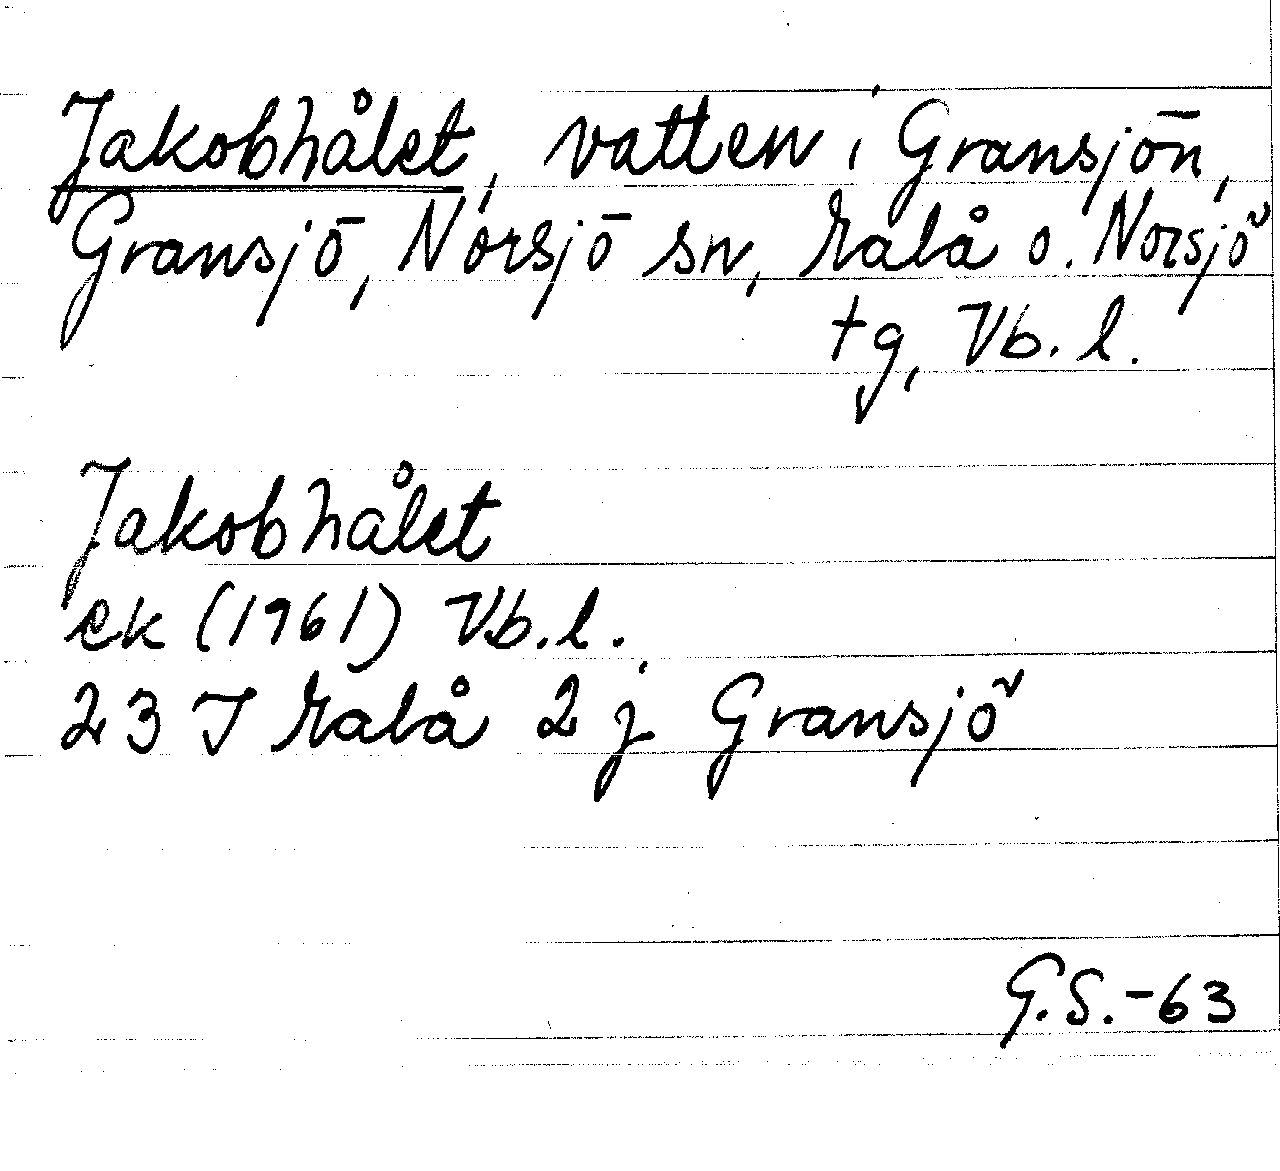 Jakobhålet, vatten i Gransjön,
Gransjö, Norsjö sn, Malå o. Norsjö
tg, Vb. l.
Jakobhålet
ek (1961) Vb. l.
23 I Malå 2 j Gransjö
G.S. -63